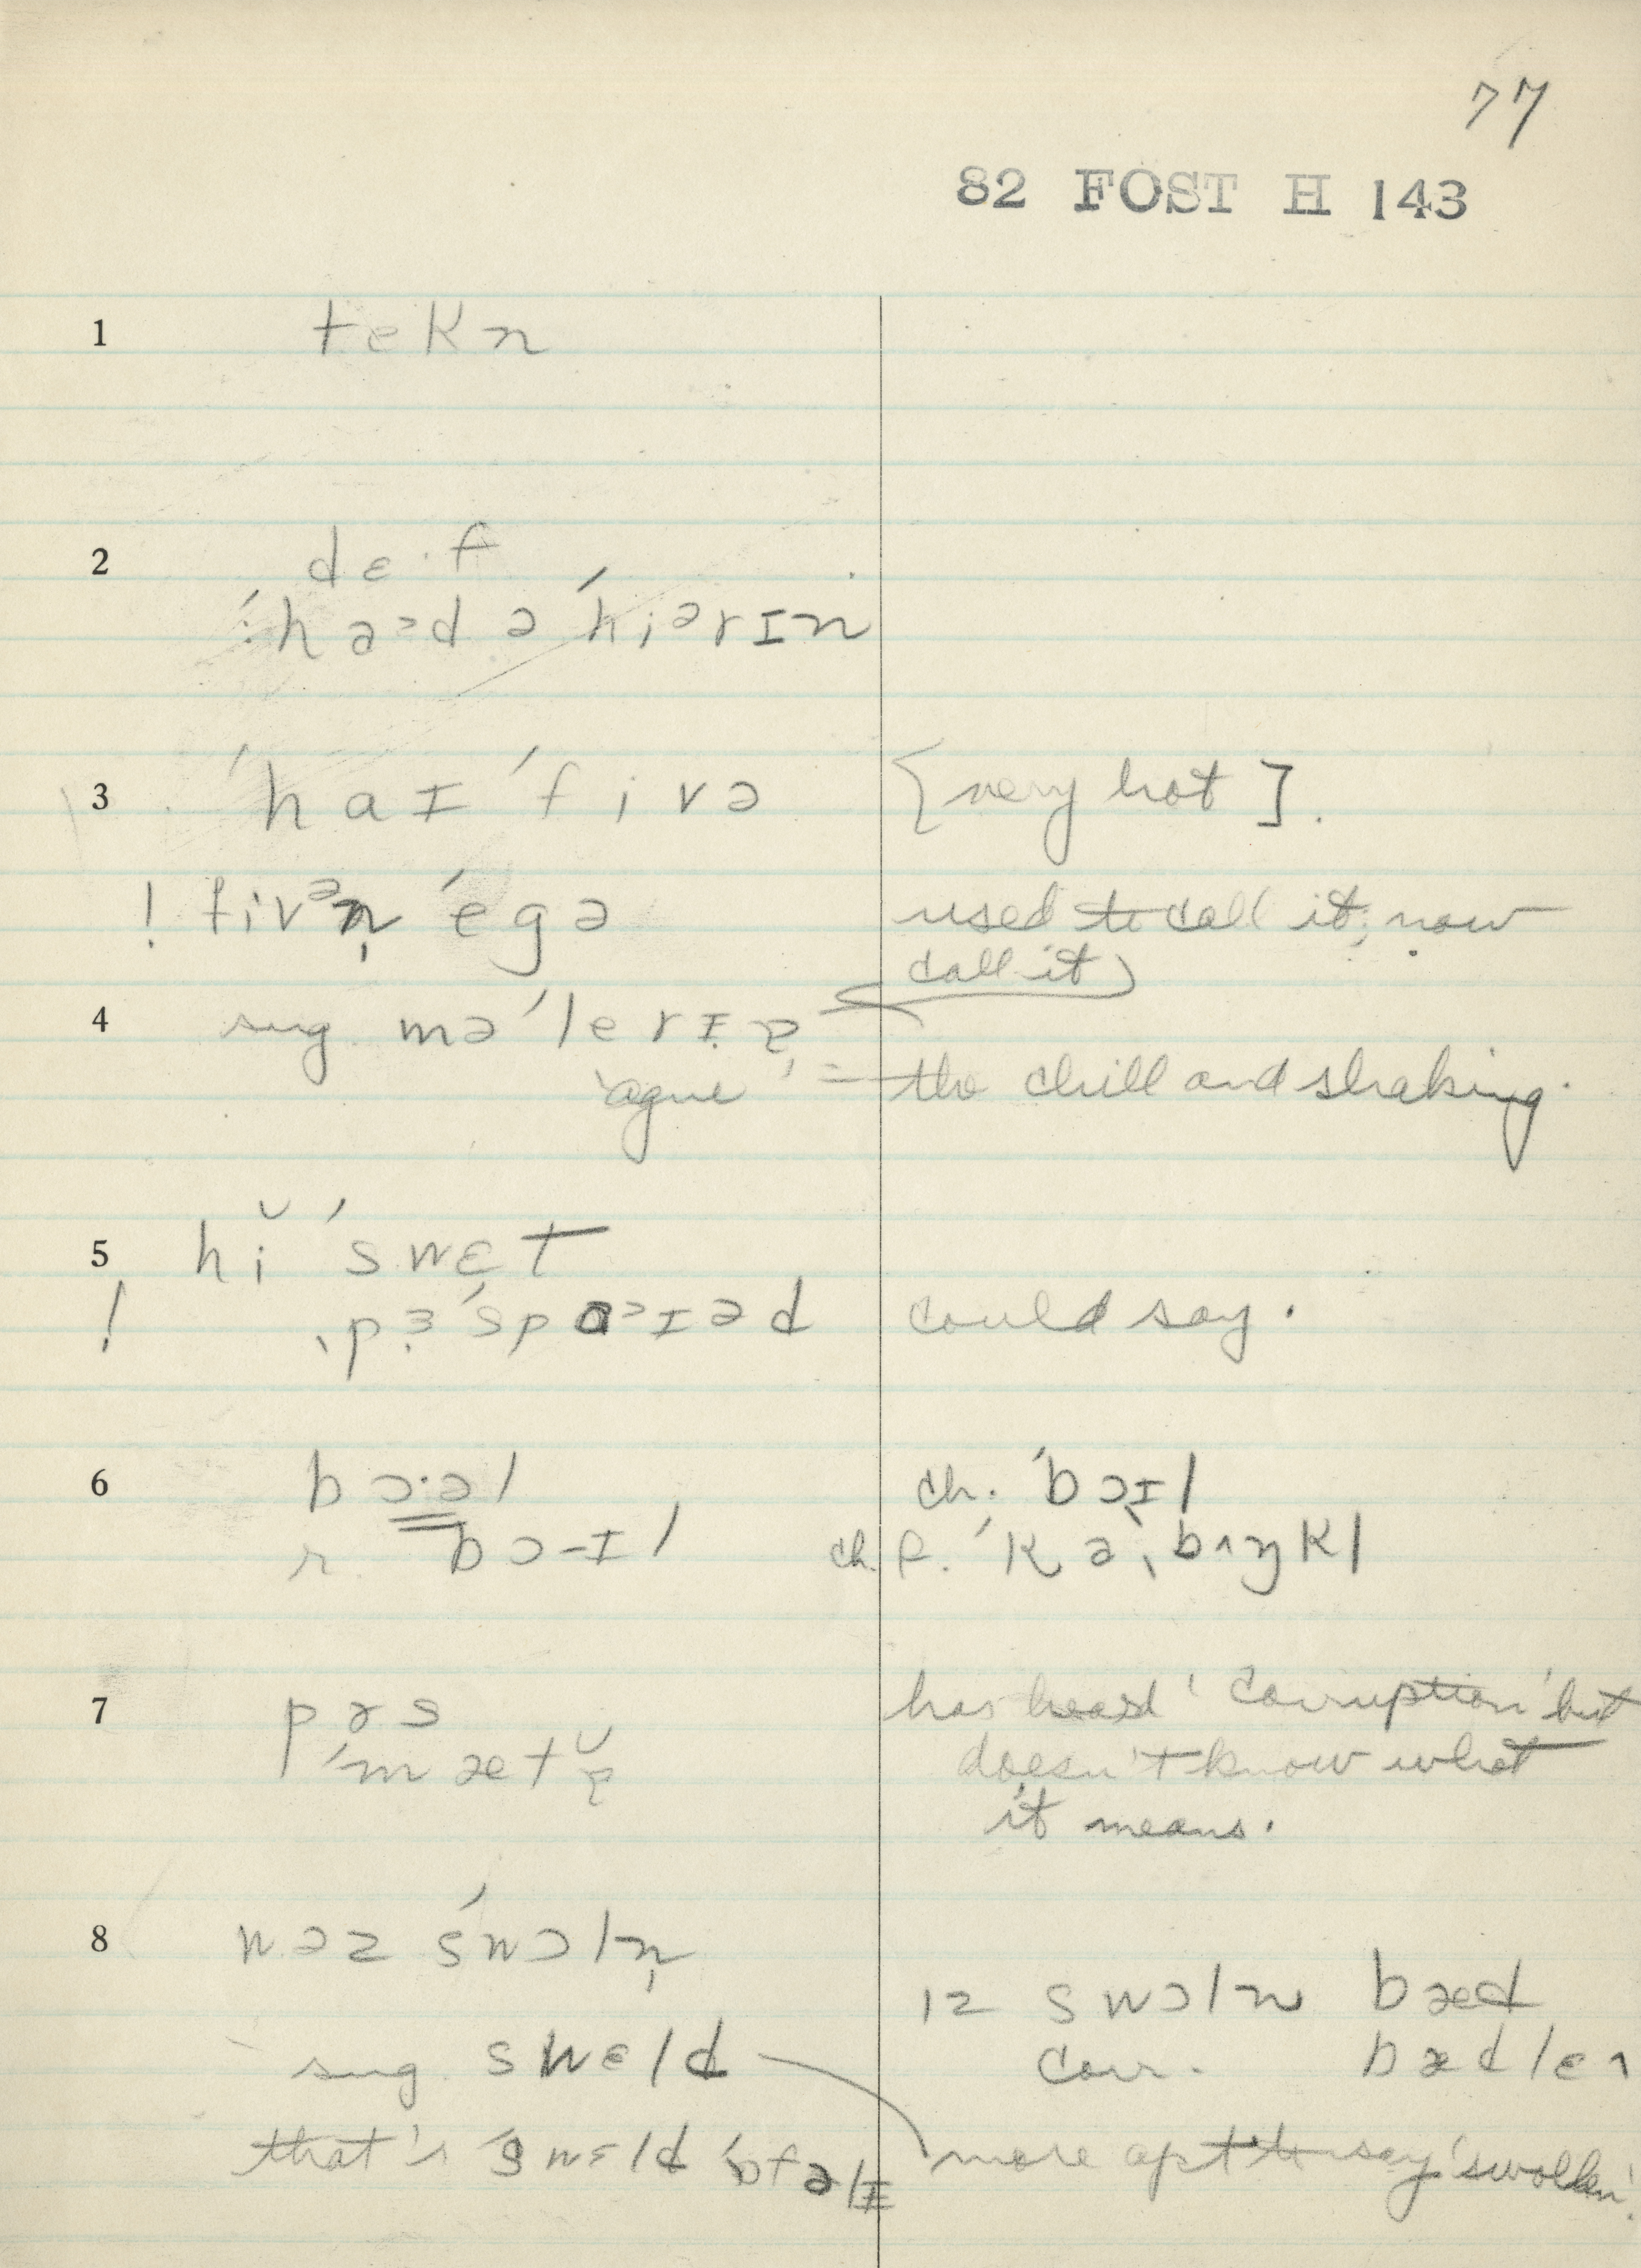 77
82 FOST H 143
1 tekn
2 dɛ·f
ˈhaᵊd ə ˈhiᵊrɪn
3 ˈhaɪ ˈfivə [very hot].
! fivᵊn̩ ˈegə used to call it; now
call it
4 sug. məˈlerɪ
'ague' = the chill and shaking.
5 hĭ ˈswɛt
! ˌpɜˈspaᵊɪəd could say.
6 bɔ·əl ch. ˈbɔɪl
r. bɔ-ɪl ch. f. ˈkaˌbʌŋkl
7 pɜs has heard 'corruption' but
ˈmætɚ̆ doesn't know what
it means.
8 wəz ˈswɔln̩
ɪz swɔln bæd
sug. swɛld corr. bæd lɛ
that's ˈswɛld ˈɔfəlɪ more apt to say 'swollen'.